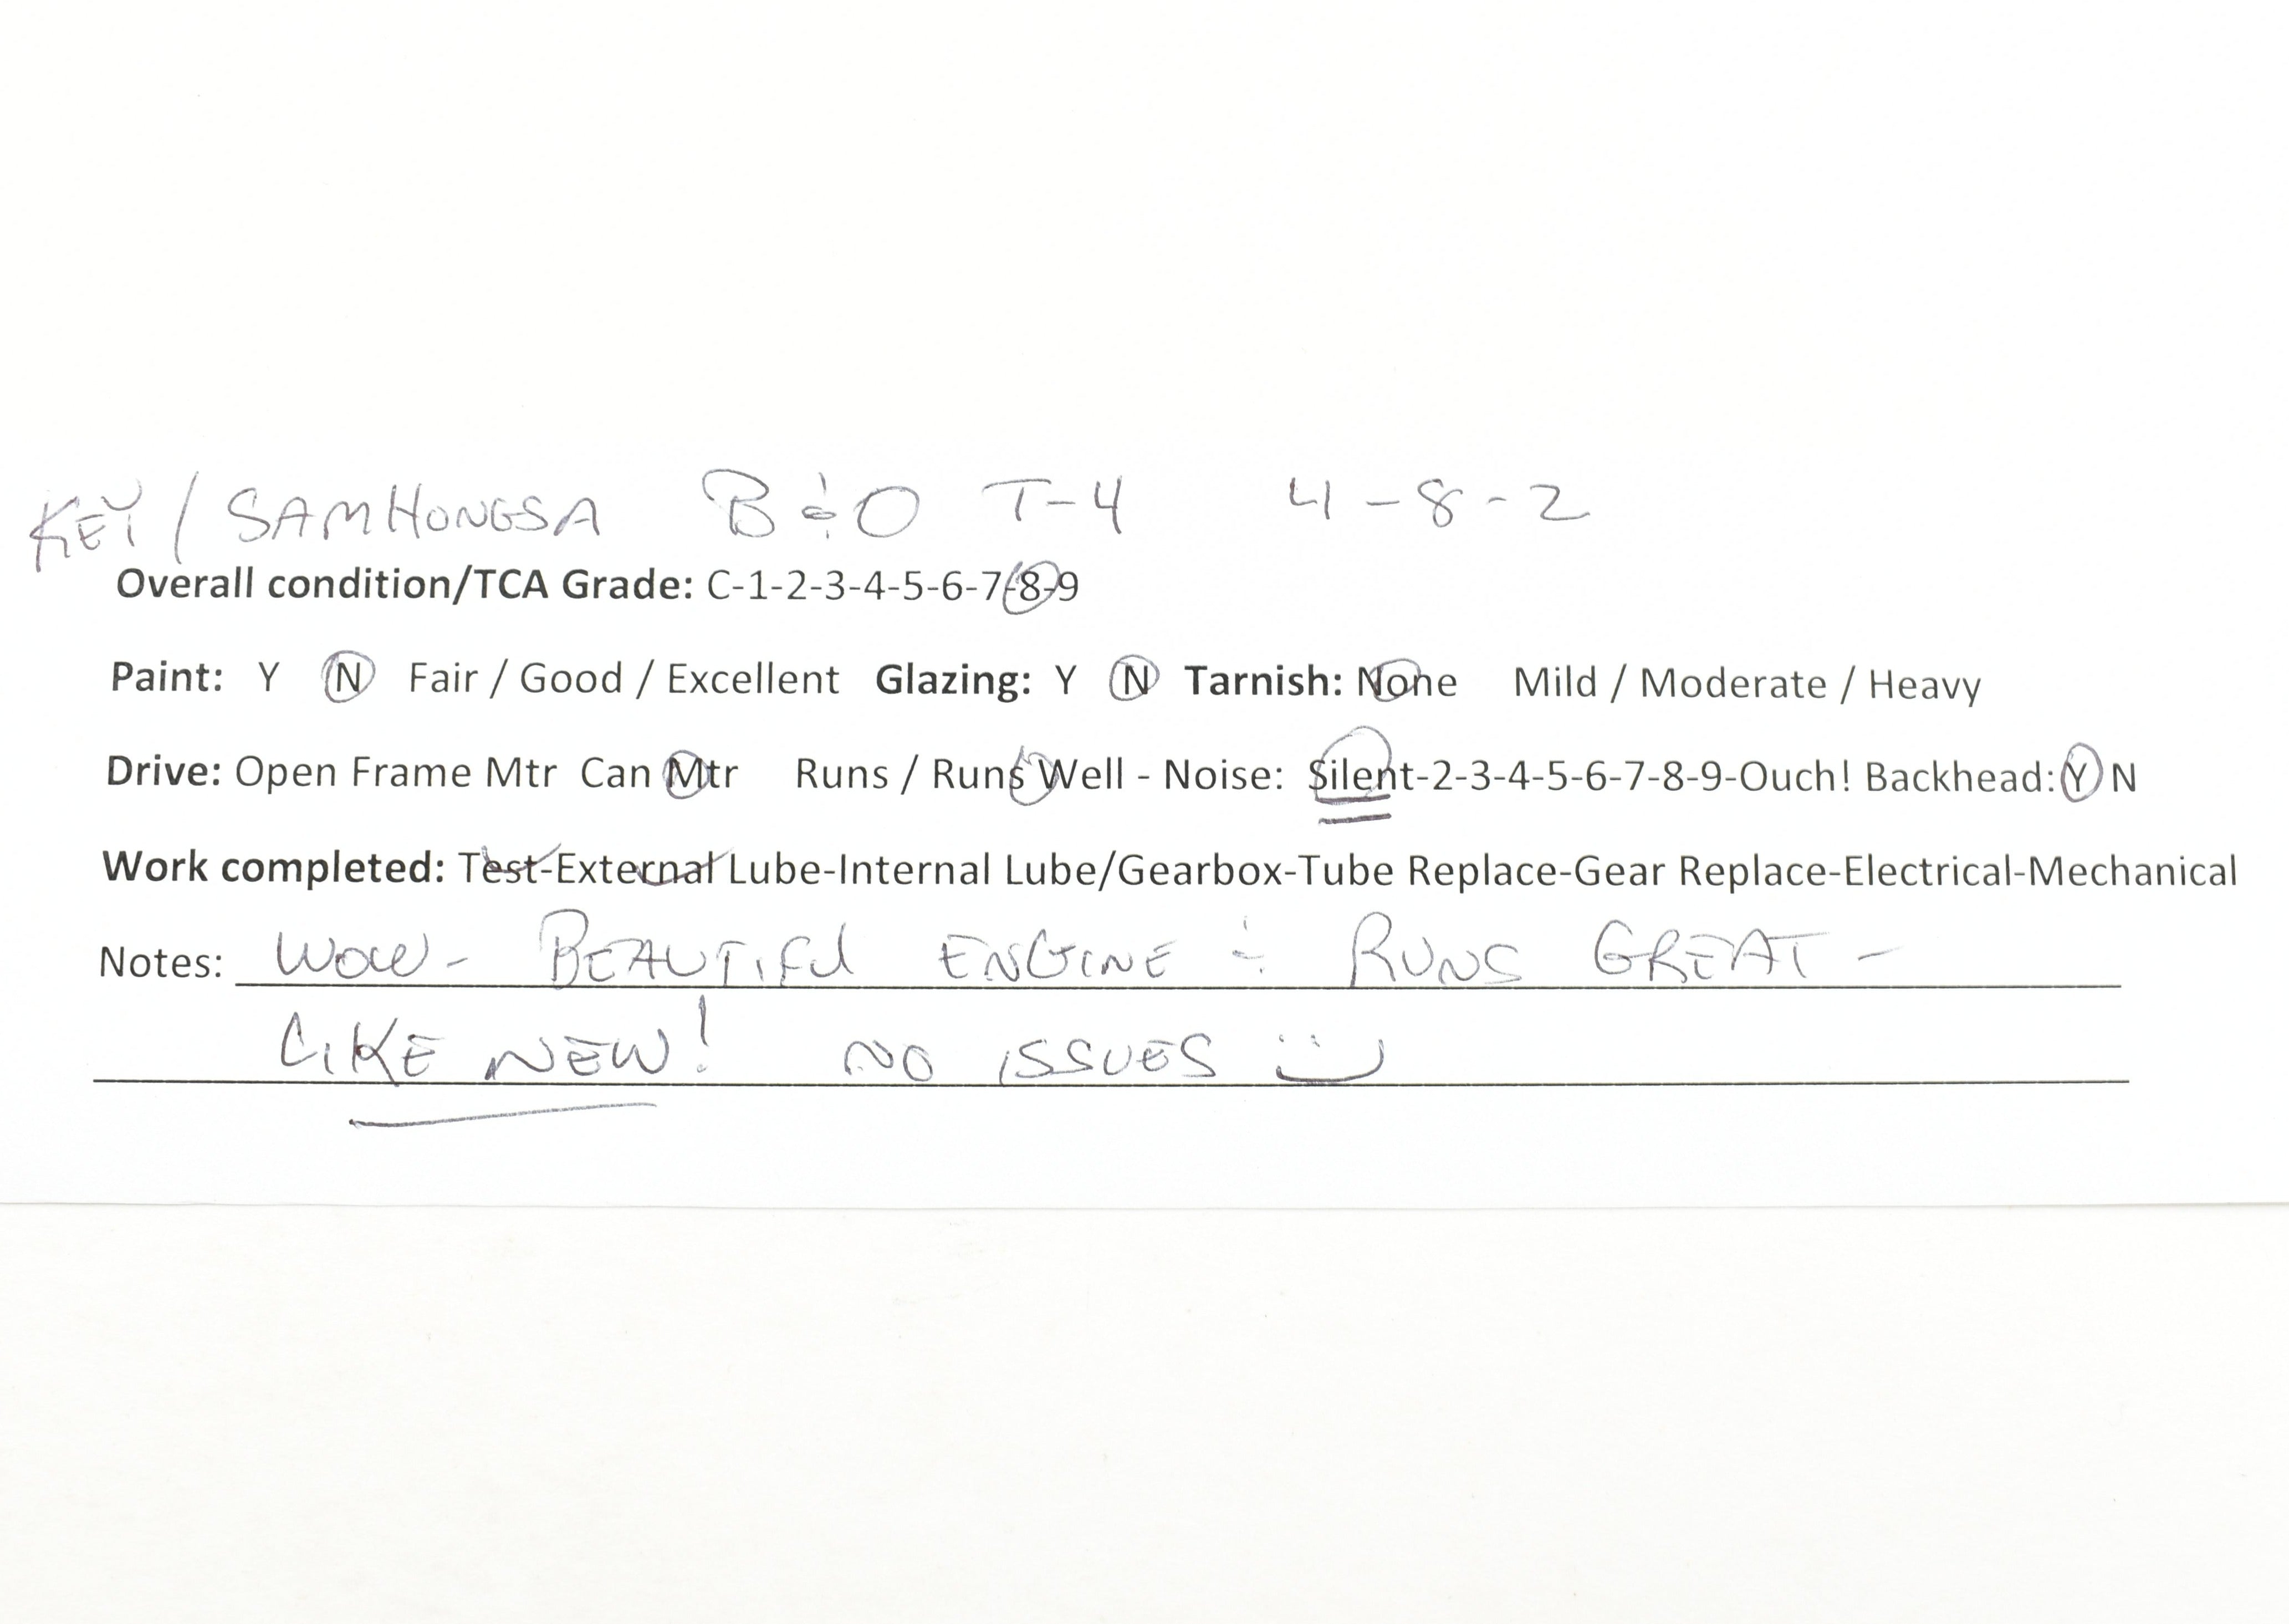 KEY / SAMHONGSA B & O T-4 4-8-2
Overall condition/TCA Grade: C-1-2-3-4-5-6-7-8-9
Paint: Y N Fair / Good / Excellent Glazing: Y N Tarnish: None Mild / Moderate / Heavy
Drive: Open Frame Mtr Can Mtr Runs / Runs Well - Noise: Silent-2-3-4-5-6-7-8-9-Ouch! Backhead: Y N
Work completed: Test-External Lube-Internal Lube/Gearbox-Tube Replace-Gear Replace-Electrical-Mechanical
Notes: WOW - BEAUTIFUL ENGINE & RUNS GREAT -
LIKE NEW! NO ISSUES